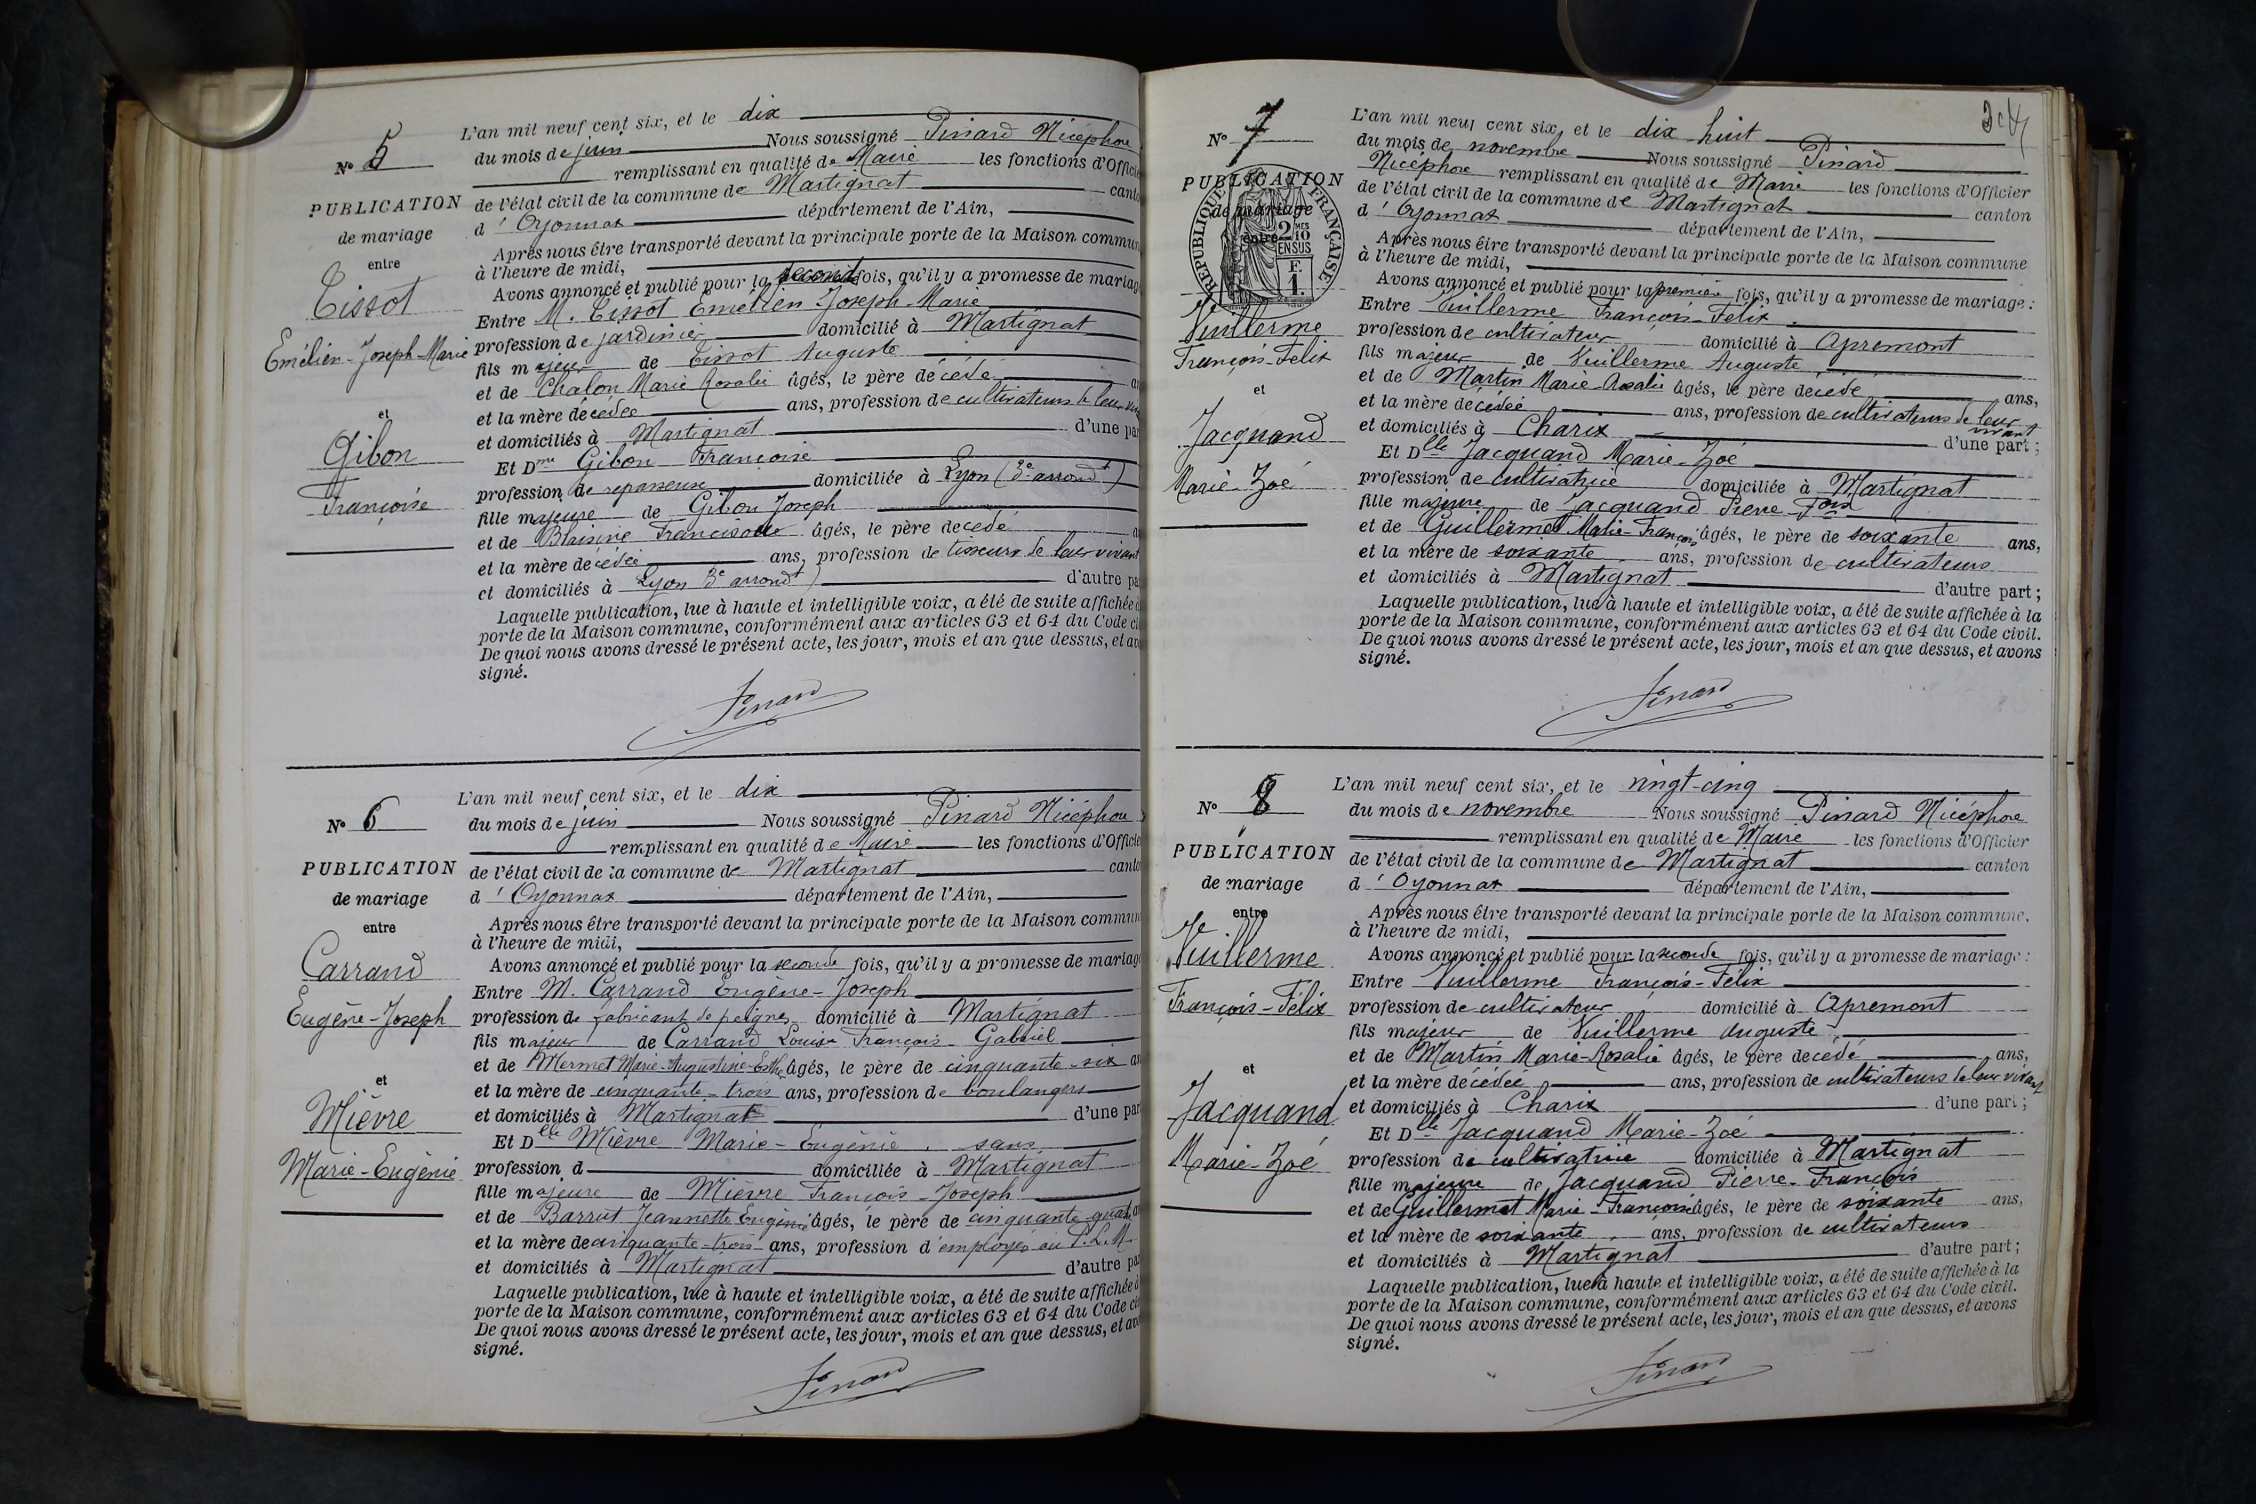 Nº 5
PUBLICATION
de mariage
entre
Tissot
Emélien-Joseph-Marie
et
Gibon
Françoise
L'an mil neuf cent six, et le dix
du mois de juin Nous soussigné Pinard Nicéphore
remplissant en qualité de Maire les fonctions d'Officie
de l'état civil de la commune de Martignat canto
d'Oyonnax département de l'Ain,
Après nous être transporté devant la principale porte de la Maison commun
à l'heure de midi,
Avons annoncé et publié pour la seconde fois, qu'il y a promesse de mariag
Entre M. Tissot Emélien Joseph-Marie
profession de jardinier domicilié à Martignat
fils majeur de Tissot Auguste
et de Chalon Marie Rosalie âgés, le père décédé a
et la mère décédée ans, profession de cultivateurs de leur viv
et domiciliés à Martignat d'une par
Et Dme Gibon Françoise
profession de repasseuse domiciliée à Lyon (3e arrondt)
fille majeure de Gibon Joseph
et de Blaisine âgés, le père decédé a
et la mère décédée ans, profession de tisseurs de leur vivant
et domiciliés à Lyon 3e arrondt) d'autre pa
Laquelle publication, lue à haute et intelligible voix, a été de suite affichée à
porte de la Maison commune, conformément aux articles 63 et 64 du Code ci
De quoi nous avons dressé le présent acte, les jour, mois et an que dessus, et avo
signé.
Pinard
Nº 6
PUBLICATION
de mariage
entre
Carrand
Eugène-Joseph
et
Mièvre
Marie-Eugènie
L'an mil neuf cent six, et le dix
du mois de juin Nous soussigné Pinard Nicéphore
remplissant en qualité de Maire les fonctions d'Officie
de l'état civil de la commune de Martignat canto
d'Oyonnax département de l'Ain,
Après nous être transporté devant la principale porte de la Maison commun
à l'heure de midi,
Avons annoncé et publié pour la seconde fois, qu'il y a promesse de mariag
Entre M. Carrand Eugène-Joseph
profession de fabricant de peignes domicilié à Martignat
fils majeur de Carrand Louis François-Gabriel
et de Mermet Marie-Augustine-Esther âgés, le père de cinquante-six an
et la mère de cinquante-trois ans, profession de boulangers
et domiciliés à Martignat d'une par
Et Dlle Mièvre Marie-Eugènie, sans
profession d domiciliée à Martignat
fille majeure de Mièvre François-Joseph
et de Barrut Jeannette Eugènie âgés, le père de cinquante-quatre a
et la mère de cinquante-trois ans, profession d'employés au P.L.M.
et domiciliés à Martignat d'autre pa
Laquelle publication, lue à haute et intelligible voix, a été de suite affichée à
porte de la Maison commune, conformément aux articles 63 et 64 du Code ci
De quoi nous avons dressé le présent acte, les jour, mois et an que dessus, et avo
signé.
Pinard
Nº 7
PUBLICATION
de mariage
entre
RÉPUBLIQUE FRANÇAISE
2 MES 10
EN SUS
F.
1.
Vuillerme
François-Felix
et
Jacquand
Marie-Zoé
L'an mil neuf cent six, et le dix huit
du mois de novembre Nous soussigné Pinard
Nicéphore remplissant en qualité de Maire les fonctions d'Officier
de l'état civil de la commune de Martignat canton
d'Oyonnax département de l'Ain,
Après nous être transporté devant la principale porte de la Maison commune
à l'heure de midi,
Avons annoncé et publié pour la première fois, qu'il y a promesse de mariage :
Entre Vuillerme François-Felix
profession de cultivateur domicilié à Apremont
fils majeur de Vuillerme Auguste
et de Martin Marie-Rosalie âgés, le père décédé ans,
et la mère décédée ans, profession de cultivateurs de leur
vivant
et domiciliés à Charix d'une part ;
Et Dlle Jacquand Marie-Zoé
profession de cultivatrice domiciliée à Martignat
fille majeure de Jacquand Pierre-Fois
et de Guillermet Marie-Françoise âgés, le père de soixante ans,
et la mère de soixante ans, profession de cultivateurs
et domiciliés à Martignat d'autre part ;
Laquelle publication, lue à haute et intelligible voix, a été de suite affichée à la
porte de la Maison commune, conformément aux articles 63 et 64 du Code civil.
De quoi nous avons dressé le présent acte, les jour, mois et an que dessus, et avons
signé.
Pinard
Nº 8
PUBLICATION
de mariage
entre
Vuillerme
François-Félix
et
Jacquand
Marie-Zoé
L'an mil neuf cent six, et le vingt-cinq
du mois de novembre Nous soussigné Pinard Nicéphore
remplissant en qualité de Maire les fonctions d'Officier
de l'état civil de la commune de Martignat canton
d'Oyonnax département de l'Ain,
Après nous être transporté devant la principale porte de la Maison commune,
à l'heure de midi,
Avons annoncé et publié pour la seconde fois, qu'il y a promesse de mariage :
Entre Vuillerme François-Félix
profession de cultivateur domicilié à Apremont
fils majeur de Vuillerme Auguste
et de Martin Marie-Rosalie âgés, le père decédé ans,
et la mère décédée ans, profession de cultivateurs de leur vivant
et domiciliés à Charix d'une part ;
Et Dlle Jacquand Marie-Zoé
profession de cultivatrice domiciliée à Martignat
fille majeure de Jacquand Pierre-François
et de Guillermet Marie-Françoise âgés, le père de soixante ans,
et la mère de soixante ans, profession de cultivateurs
et domiciliés à Martignat d'autre part ;
Laquelle publication, lue à haute et intelligible voix, a été de suite affichée à la
porte de la Maison commune, conformément aux articles 63 et 64 du Code civil.
De quoi nous avons dressé le présent acte, les jour, mois et an que dessus, et avons
signé.
Pinard